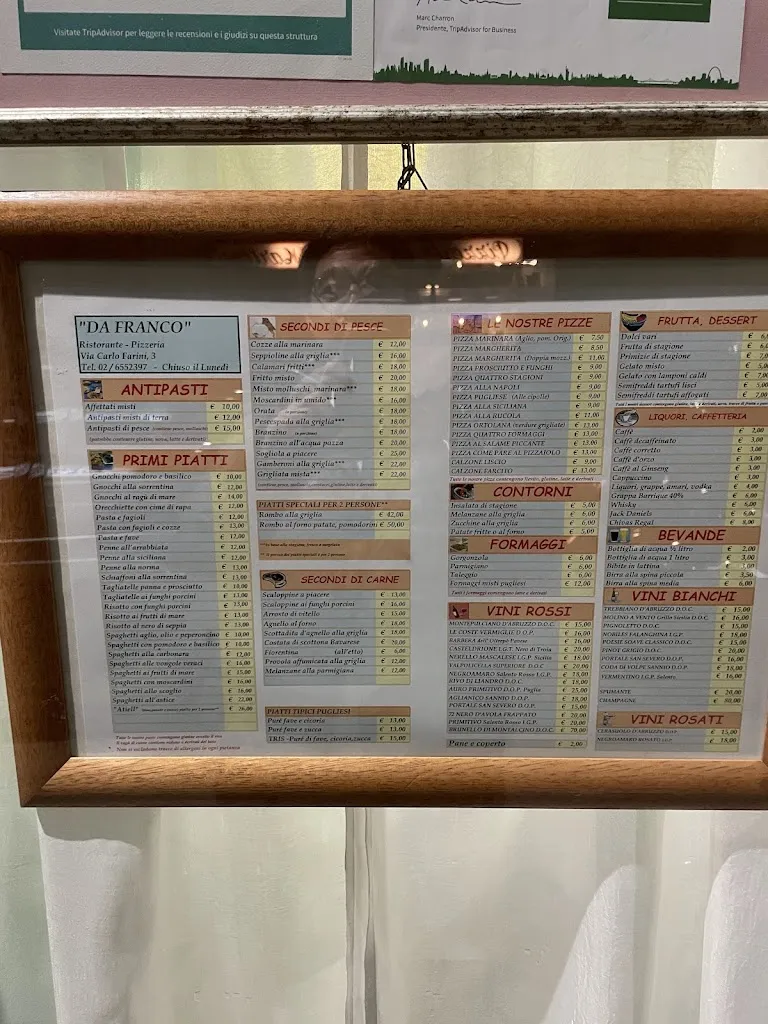 Visitate TripAdvisor per leggere le recensioni e i giudizi su questa struttura
Marc Charron
Presidente, TripAdvisor for Business
"DA FRANCO"
Ristorante - Pizzeria
Via Carlo Farini, 3
Tel. 02 / 6552397 - Chiuso il Lunedì
ANTIPASTI
Affettati misti € 10,00
Antipasti misti di terra € 12,00
Antipasti di pesce € 15,00
PRIMI PIATTI
Gnocchi pomodoro e basilico € 10,00
Gnocchi alla sorrentina € 12,00
Gnocchi al ragù di mare € 14,00
Orecchiette con cime di rapa € 12,00
Pasta e fagioli € 12,00
Pasta con fagioli e cozze € 13,00
Pasta e fave € 12,00
Penne all'arrabbiata € 12,00
Penne alla siciliana € 12,00
Penne alla norma € 13,00
Schiaffoni alla sorrentina € 13,00
Tagliatelle panna e prosciutto € 13,00
Tagliatelle ai funghi porcini € 13,00
Risotto con funghi porcini € 13,00
Risotto ai frutti di mare € 15,00
Risotto al nero di seppia € 13,00
Spaghetti aglio, olio e peperoncino € 10,00
Spaghetti con pomodoro e basilico € 10,00
Spaghetti alla carbonara € 12,00
Spaghetti alle vongole veraci € 16,00
Spaghetti ai frutti di mare € 15,00
Spaghetti con moscardini € 16,00
Spaghetti allo scoglio € 16,00
Spaghetti all'astice € 22,00
€ 26,00
SECONDI DI PESCE
Cozze alla marinara € 12,00
Seppioline alla griglia*** € 16,00
Calamari fritti*** € 18,00
Fritto misto € 20,00
Misto molluschi marinara*** € 18,00
Moscardini in umido*** € 16,00
Orata € 18,00
Pescespada alla griglia*** € 18,00
Branzino € 18,00
Branzino all'acqua pazza € 20,00
Sogliola a piacere € 25,00
Gamberoni alla griglia*** € 22,00
Grigliata mista*** € 22,00
PIATTI SPECIALI PER 2 PERSONE**
Rombo alla griglia € 42,00
Rombo al forno patate, pomodorini € 50,00
SECONDI DI CARNE
Scaloppine a piacere € 13,00
Scaloppine ai funghi porcini € 16,00
Arrosto di vitello € 15,00
Agnello al forno € 18,00
Scottadita d'agnello alla griglia € 18,00
Costata di scottona Bavarese € 20,00
Fiorentina (all'etto) € 6,00
Provola affumicata alla griglia € 12,00
Melanzane alla parmigiana € 12,00
PIATTI TIPICI PUGLIESI
Purè fave e cicoria € 13,00
Purè fave e zucca € 13,00
TRIS -Purè di fave, cicoria,zucca € 15,00
LE NOSTRE PIZZE
PIZZA MARINARA (Aglio, pom. Orig.) € 7,50
PIZZA MARGHERITA € 8,50
PIZZA MARGHERITA (Doppia mozz.) € 11,00
PIZZA PROSCIUTTO E FUNGHI € 9,00
PIZZA QUATTRO STAGIONI € 9,00
PIZZA ALLA NAPOLI € 9,00
PIZZA PUGLIESE (Alle cipolle) € 9,00
PIZZA ALLA SICILIANA € 9,00
PIZZA ALLA RUCOLA € 11,00
PIZZA ORTOLANA (verdure grigliate) € 13,00
PIZZA QUATTRO FORMAGGI € 13,00
PIZZA AL SALAME PICCANTE € 13,00
PIZZA COME PARE AL PIZZAIOLO € 13,00
CALZONE LISCIO € 9,00
CALZONE FARCITO € 13,00
CONTORNI
Insalata di stagione € 5,00
Melanzane alla griglia € 6,00
Zucchine alla griglia € 6,00
Patate fritte o al forno € 5,00
FORMAGGI
Gorgonzola € 6,00
Parmigiano € 6,00
Taleggio € 6,00
Formaggi misti pugliesi € 12,00
VINI ROSSI
MONTEPULCIANO D'ABRUZZO D.O.C. € 15,00
LE COSTE VERMIGLIE D.O.P. € 16,00
BARBERA dell'Oltrepò Pavese € 16,00
CASTELFRIONE I.G.T. Nero di Troia € 20,00
NERELLO MASCALESE I.G.P. Sicilia € 18,00
VALPOLICELLA SUPERIORE D.O.C. € 20,00
NEGROAMARO Salento Rosso I.G.P. € 18,00
RIVO DI LIANDRO D.O.C. € 18,00
AURO PRIMITIVO D.O.P. Puglia € 25,00
AGLIANICO SANNIO D.O.P. € 18,00
PORTALE SAN SEVERO D.O.P. € 15,00
NERO D'AVOLA FRAPPATO € 20,00
PRIMITIVO Salento Rosso I.G.P. € 20,00
BRUNELLO DI MONTALCINO D.O.C. € 70,00
Pane e coperto € 2,00
FRUTTA, DESSERT
Dolci vari €
Frutta di stagione €
Primizie di stagione €
Gelato misto €
Gelato con lamponi caldi €
Semifreddi tartufi lisci €
Semifreddi tartufi affogati €
LIQUORI, CAFFETTERIA
Caffè € 2,00
Caffè decaffeinato € 3,00
Caffè corretto € 3,00
Caffè d'orzo € 3,00
Caffè al Ginseng € 3,00
Cappuccino € 3,00
Liquori, grappe, amari, vodka € 4,00
Grappa Barrique 40% € 6,00
Whisky € 5,00
Jack Daniels € 5,00
Chivas Regal € 8,00
BEVANDE
Bottiglia di acqua ½ litro € 2,00
Bottiglia di acqua 1 litro € 3,00
Bibite in lattina € 3,00
Birra alla spina piccola € 3,50
Birra alla spina media € 6,00
VINI BIANCHI
TREBBIANO D'ABRUZZO D.O.C. € 15,00
MOLINO A VENTO Grillo Sicilia D.O.C. € 16,00
PIGNOLETTO D.O.C. € 15,00
NOBILES FALANGHINA I.G.P. € 18,00
POESIE SOAVE CLASSICO D.O.C. € 15,00
PINOT GRIGIO D.O.C. € 20,00
PORTALE SAN SEVERO D.O.P. € 16,00
CODA DI VOLPE SANNIO D.O.P. € 18,00
FERMENTINO I.G.P. Salento € 16,00
SPUMANTE € 20,00
CHAMPAGNE € 80,00
VINI ROSATI
CERASUOLO D'ABRUZZO D.O.P. € 15,00
NEGROAMARO ROSATO I.G.P. € 18,00